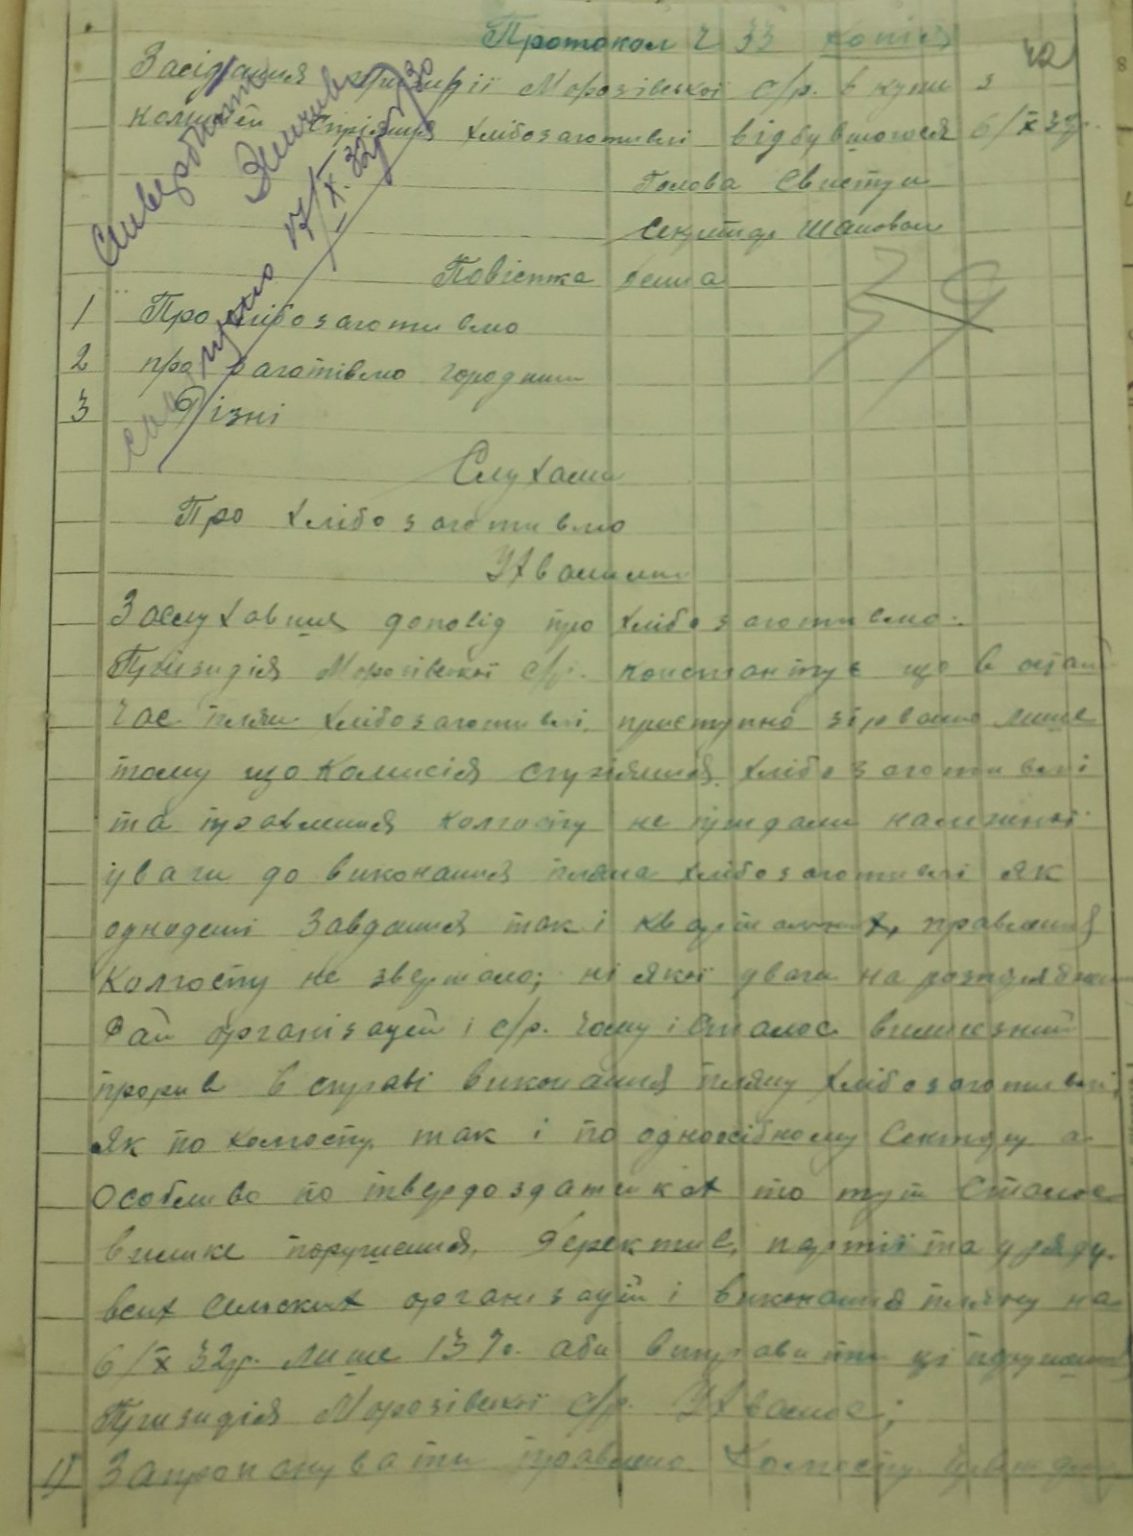 Протокол Ч 33 копія
42
Засідання Призидії Морозівської с/р. в купи з
комисией Сприяння хлібозаготивлі відбувшогося 6/X 32р.
Голова Свистун
Секритар Шаповал
17/X. 32р
Повістка денна
1 Про хлібозаготивлю
2 про заготівлю городини
3 Різні
Слухали
Про хлібозаготивлю
Ухвалили
Заслухавши доповід про хлібозаготивлю.
Призидія Морозівської с/р. констонтує що в остан
час плян хлібозаготивлі приступно зірвано лише
тому що Комисія сприяння хлібозаготивлі
та правлиння колгоспу не придали налижної
уваги до виконання пляна хлібозаготивлі як
одноденні завдання так і квартальних, правлиння
Колгоспу не звертало; ні якої уваги на розпорядження
Рай організацій і с/р. чому і сталос вилизний
прорив в справі виконання пляну хлібозаготивлі,
як по колгоспу так і по одноосібному Сектору а
особливо по твердоздатчиках то тут сталос
вилике порушення, деректив, партії та уряду.
всих Сильских організацій і виконання пляну на
6/X 32р. лише 13%. аби виправити ці порушення
Призидія Морозівської с/р. Ухвалює;
1) Запропонувати правлиню Колгоспу